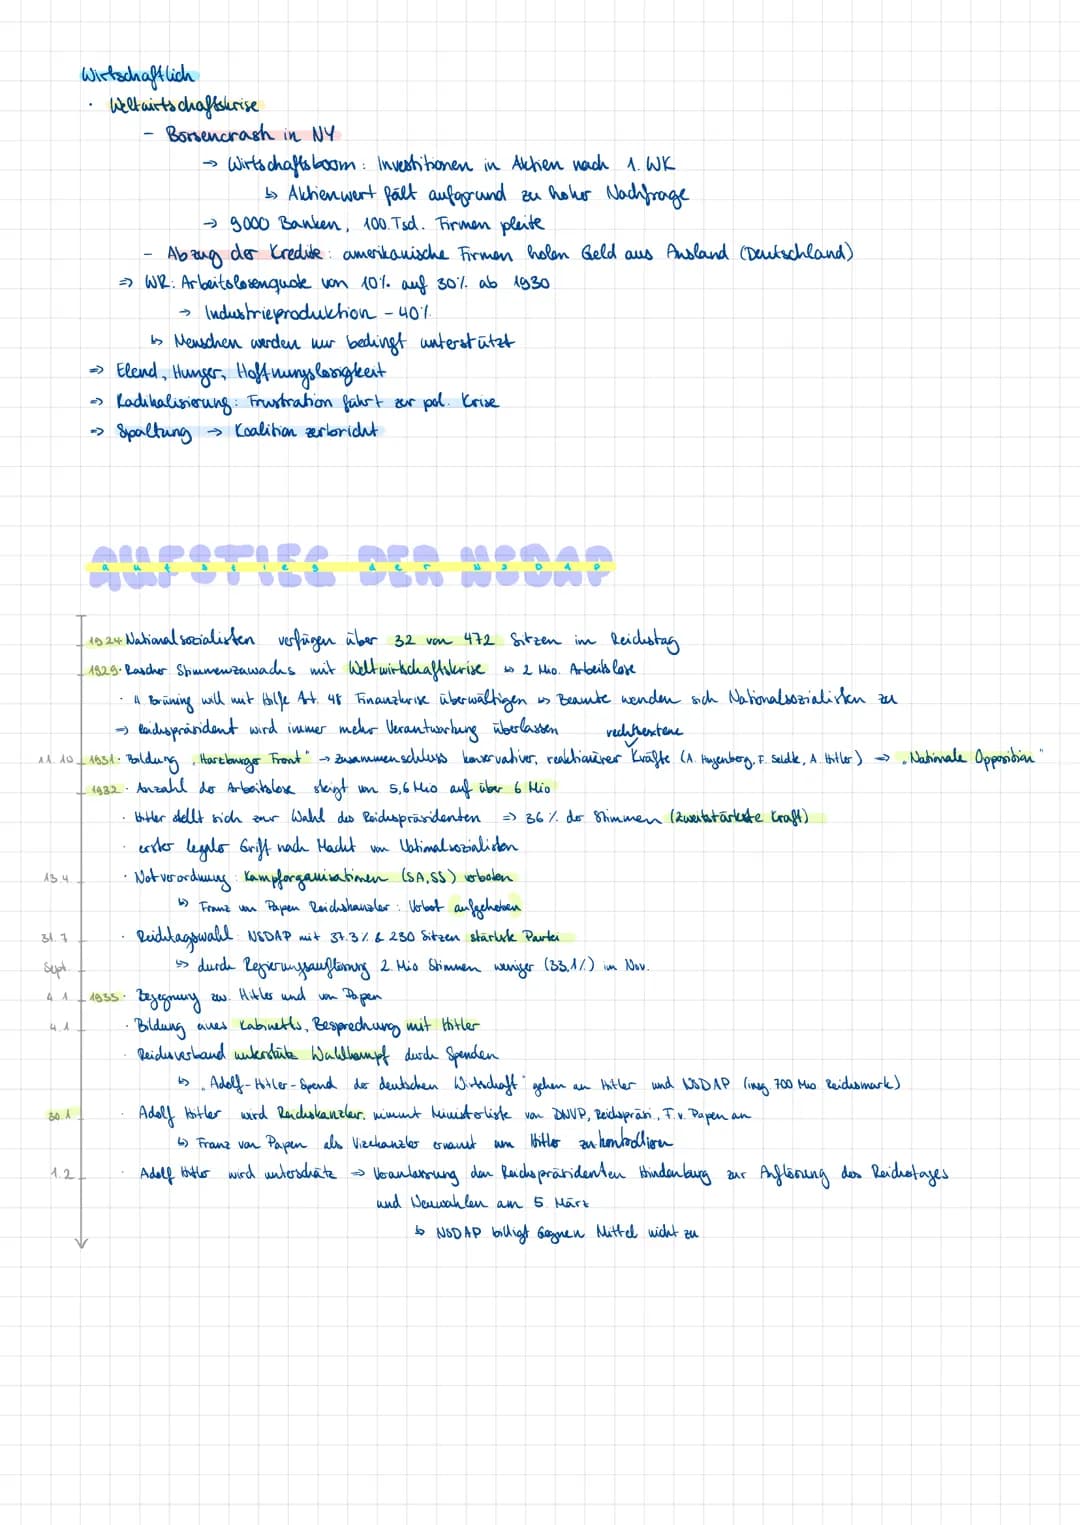 Wirtschaftlich
· Weltwirtschaftskrise
- Börsencrash in NY
→ Wirtschaftsboom: Investitionen in Aktien nach 1. WK
↳ Aktienwert fält aufgrund zu hoher Nachfrage
→ 9000 Banken, 100.Tsd. Firmen pleite
- Abzug der Kredite: amerikanische Firmen holen Geld aus Ausland (Deutschland)
⇒ WR: Arbeitslosenquote von 10% auf 30% ab 1930
→ Industrieproduktion - 40%
↳ Menschen werden nur bedingt unterstützt
⇒ Elend, Hunger, Hoffnungslosigkeit
⇒ Radikalisierung: Frustration führt zur pol. Krise
⇒ Spaltung → Koalition zerbricht
AUFSTIEG DER NSDAP
aufstieg der NSDAP
1924 Nationalsozialisten verfügen über 32 von 472 Sitzen im Reichstag
1929 · Rascher Stimmenzuwachs mit Weltwirtschaftskrise ↳ 2 Mio. Arbeitslose
· Brüning will mit Hilfe Art. 48 Finanzkrise überwältigen ↳ Beamte wenden sich Nationalsozialisten zu
⇒ Reichspräsident wird immer mehr Verantwortung überlassen
rechtsextrene
11.10 1931 · Bildung "Harzburger Front" → Zusammenschluss konservativer, reaktionärer Kräfte (A. Hugenberg, F. Seldte, A. Hitler) ⇒ "Nationale Opposition"
1932 · Anzahl der Arbeitslose steigt von 5,6 Mio auf über 6 Mio
· Hitler stellt sich zur Wahl des Reichspräsidenten ⇒ 36% der Stimmen (zweitstärkste Kraft)
· erster legaler Griff nach Macht von Nationalsozialisten
13.4 · Notverordnung: Kampforganisationen (SA, SS) verboten
↳ Franz von Papen Reichskanzler: Verbot aufgehoben
31.7 · Reichtagswahl: NSDAP mit 37.3% & 230 Sitzen stärkste Partei
Sept. ↳ durch Regierungsauflösung 2. Mio Stimmen weniger (33,1%) im Nov.
4.1 1933 · Begegnung zw. Hitler und von Papen
4.1 · Bildung eines Kabinetts, Besprechung mit Hitler
· Reichsverband unterstütz Wahlkampf durch Spenden
↳ "Adolf-Hitler-Spend der deutschen Wirtschaft" gehen an Hitler und NSDAP (insg. 700 Mio Reichsmark)
30.1 · Adolf Hitler wird Reichskanzler, nimmt Ministerliste von DNVP, Reichspräsi, F.v. Papen an
↳ Franz von Papen als Vizekanzler ernannt um Hitler zu kontrollieren
1.2 · Adolf Hitler wird unterschätz ⇒ Veranlassung den Reichspräsidenten Hindenburg zur Auflösung des Reichstages
und Neuwahlen am 5. März
↳ NSDAP billigt Gegnern Mittel nicht zu